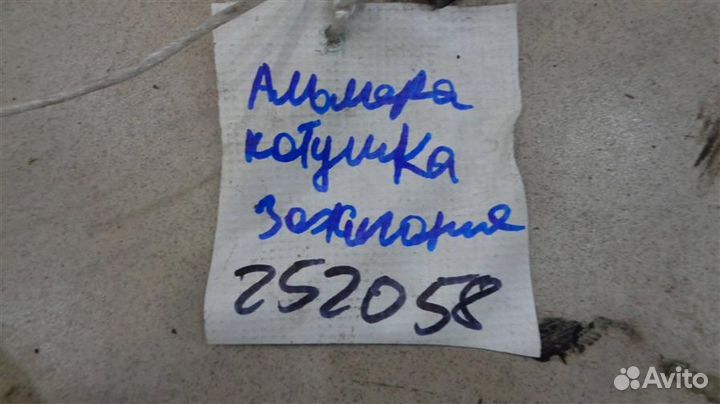 Альмера
катушка
Зажигания
252058
Avito